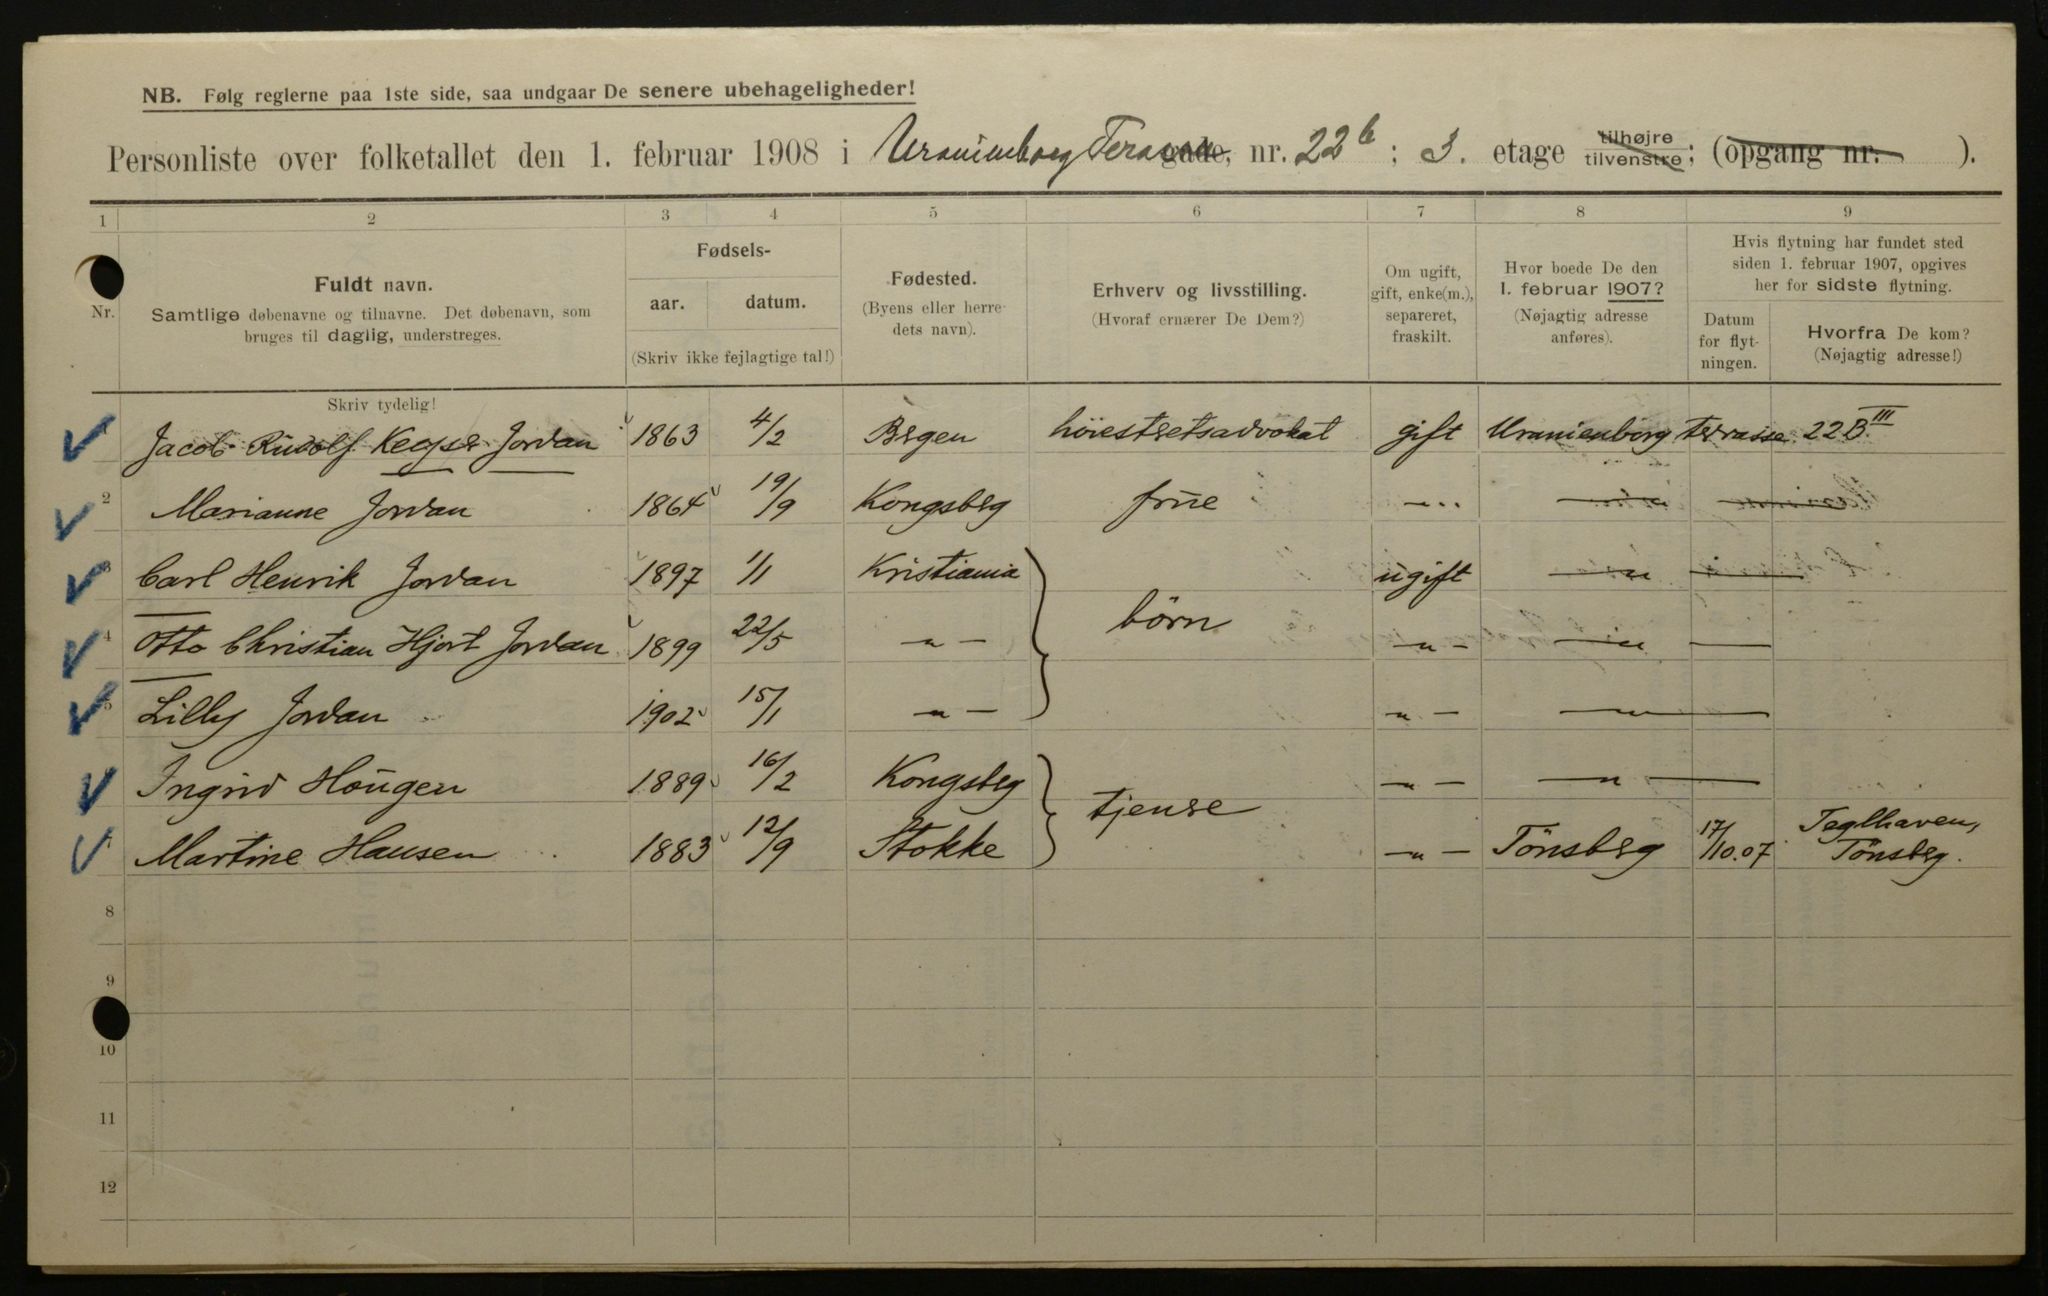 NB. Følg reglerne paa 1ste side, saa undgaar De senere ubehageligheder!
Personliste over folketallet den 1. februar 1908 i Uranienborg Terasse gade, nr. 22b; 3. etage tilhøjre tilvenstre; (opgang nr. ).
1 2 3 4 5 6 7 8 9
Nr.
Fuldt navn.
Samtlige døbenavne og tilnavne. Det døbenavn, som
bruges til daglig, understreges.
Fødsels-
aar. datum.
(Skriv ikke fejlagtige tal!)
Fødested.
(Byens eller herre-
dets navn).
Erhverv og livsstilling.
(Hvoraf ernærer De Dem?)
Om ugift,
gift, enke(m.),
separeret,
fraskilt.
Hvor boede De den
1. februar 1907?
(Nøjagtig adresse
anføres).
Hvis flytning har fundet sted
siden 1. februar 1907, opgives
her for sidste flytning.
Datum
for flyt-
ningen.
Hvorfra De kom?
(Nøjagtig adresse!)
Skriv tydelig!
Jacob Rudolf Keyser Jordan 1863 4/2 Bergen höiesteretsadvokat gift Uranienborg terrasse 22B III
2 Marianne Jordan 1864 19/9 Kongsberg frue — " — — " —
3 Carl Henrik Jordan 1897 1/1 Kristiania börn ugift — " —
4 Otto Christian Hjort Jordan 1899 22/5 — " — — " — — " —
5 Lilly Jordan 1902 15/1 — " — — " — — " —
Ingrid Hougen 1889 16/2 Kongsberg tjenere — " — — " —
Martine Hansen 1883 12/9 Stokke — " — Tönsberg 17/10.07 Teglhaven,
Tönsberg.
8
9
10
11
12